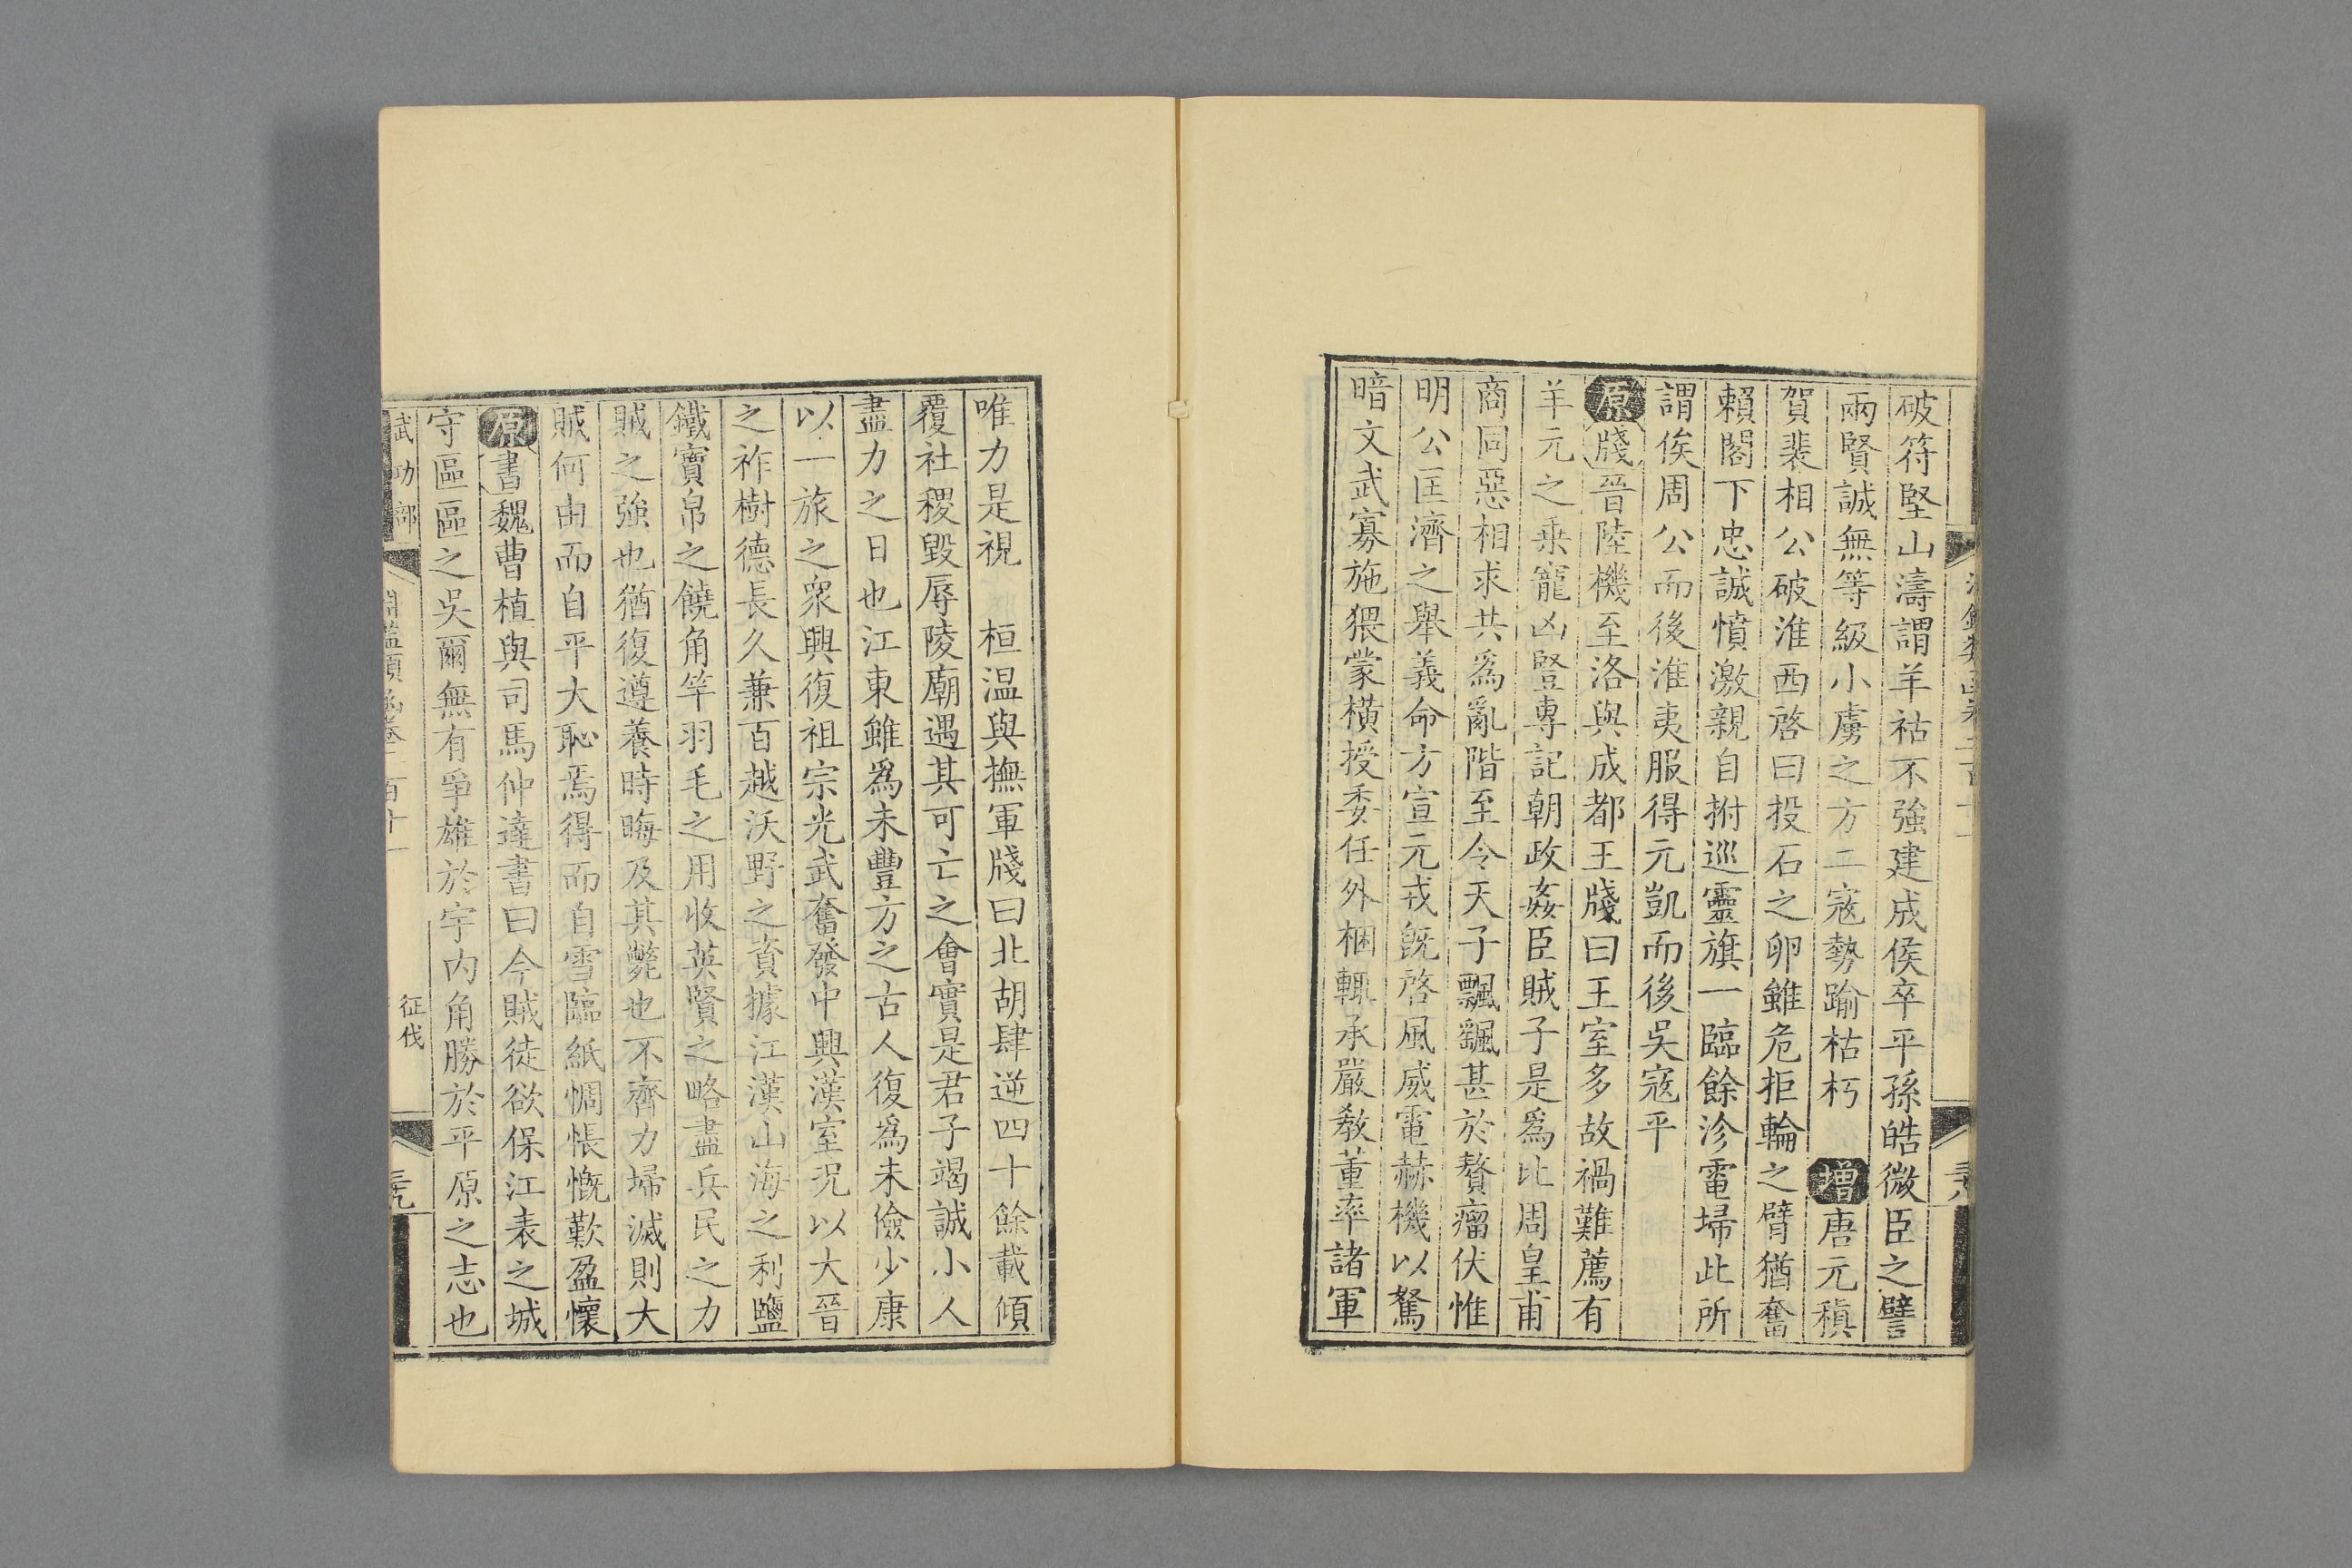 破符堅山濤謂羊祜不強建成侯卒平孫皓微臣之譬
兩賢誠無等級小虜之方二寇勢踰枯朽 增唐元稹
賀裴相公破淮西啓曰投石之卵雖危拒輪之臂猶奮
賴閤下忠誠憤激親自拊巡靈旗一臨餘沴電埽此所
謂俟周公而後淮夷服得元凱而後吳寇平
原牋晉陸機至洛與成都王牋曰王室多故禍難薦有
羊元之乘寵凶豎專記朝政姦臣賊子是爲比周皇甫
商同惡相求共爲亂階至令天子飄颻甚於贅瘤伏惟
明公匡濟之舉義命方宣元戎旣啓風威電赫機以駑
暗文武寡施猥蒙橫授委任外梱輒承嚴敎董率諸軍
唯力是視 桓温與撫軍牋曰北胡肆逆四十餘載傾
覆社稷毀辱陵廟遇其可亡之會實是君子竭誠小人
盡力之日也江東雖爲未豐方之古人復爲未儉少康
以一旅之衆興復祖宗光武奮發中興漢室况以大晉
之祚樹德長久兼百越沃野之資據江漢山海之利鹽
鐵寶帛之饒角竿羽毛之用收英賢之略盡兵民之力
賊之強也猶復遵養時晦及其斃也不齊力埽滅則大
賊何由而自平大恥焉得而自雪臨紙惆悵慨歎盈懷
原書魏曹植與司馬仲達書曰今賊徒欲保江表之城
守區區之吳爾無有爭雄於宇内角勝於平原之志也
武功部 淵鑑類函卷二百十一 征伐